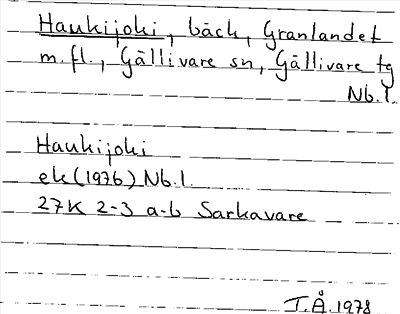 Haukijoki, bäck, Granlandet
m.fl., Gällivare sn, Gällivare tg
Nb.l.
Haukijoki
ek(1976) Nb.l.
27K 2-3 a-b Sarkavare
T.Å.1978